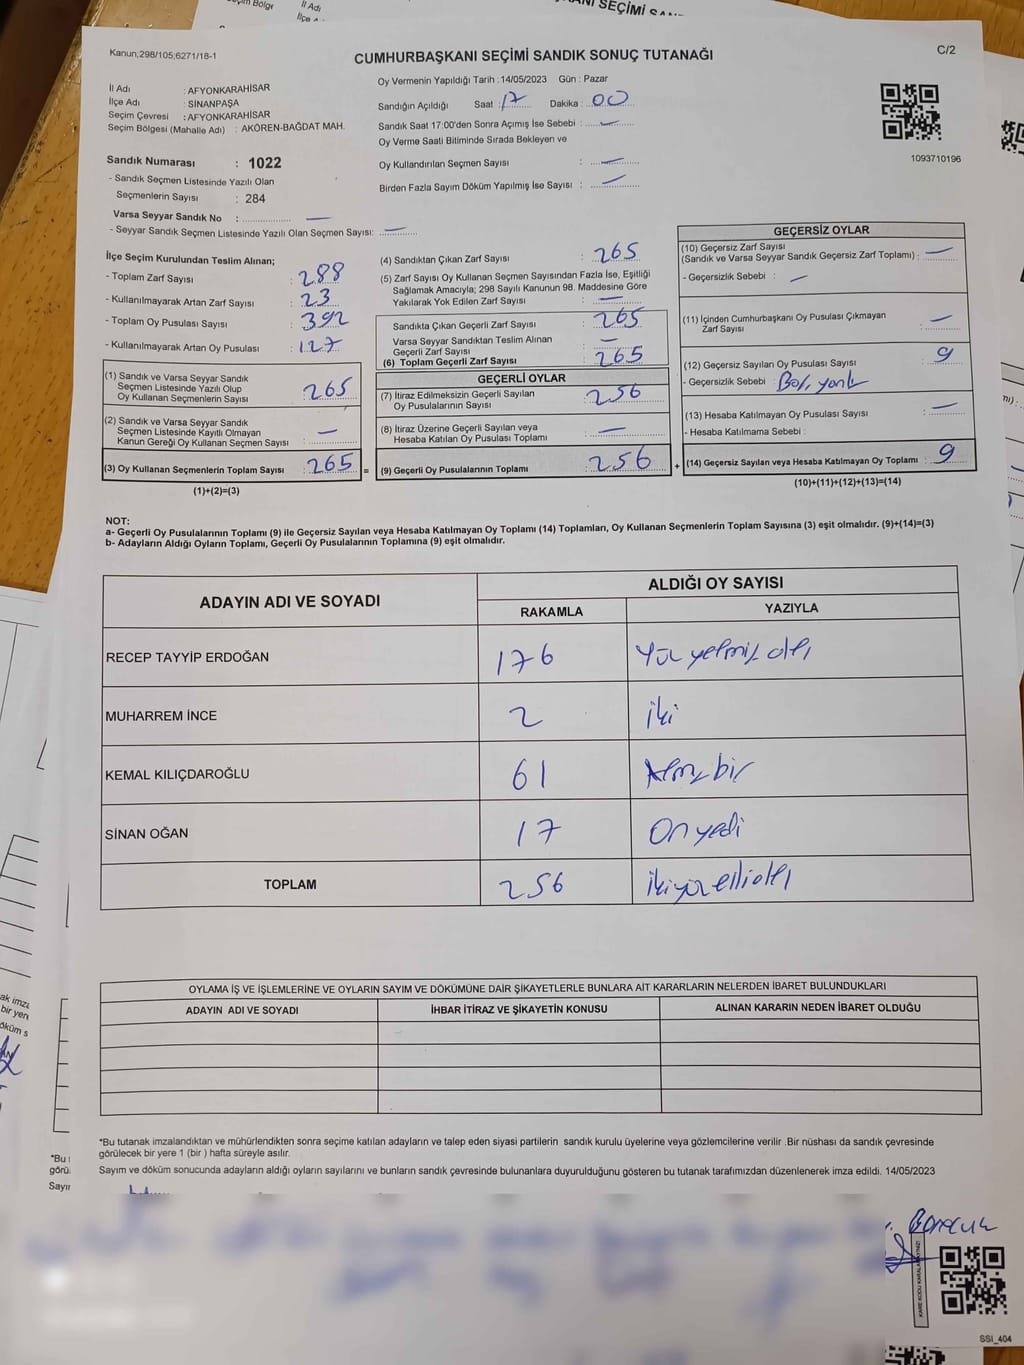 Kanun;298/105;6271/18-1
CUMHURBAŞKANI SEÇİMİ SANDIK SONUÇ TUTANAĞI
C/2
İl Adı : AFYONKARAHİSAR
İlçe Adı : SİNANPAŞA
Seçim Çevresi : AFYONKARAHİSAR
Seçim Bölgesi (Mahalle Adı) : AKÖREN-BAĞDAT MAH.
Oy Vermenin Yapıldığı Tarih :14/05/2023 Gün : Pazar
Sandığın Açıldığı Saat : 17 Dakika : 00
Sandık Saat 17:00'den Sonra Açımış İse Sebebi : —
Oy Verme Saati Bitiminde Sırada Bekleyen ve
Oy Kullandırılan Seçmen Sayısı : —
Birden Fazla Sayım Döküm Yapılmış İse Sayısı : —
1093710196
Sandık Numarası : 1022
- Sandık Seçmen Listesinde Yazılı Olan
Seçmenlerin Sayısı : 284
Varsa Seyyar Sandık No : —
- Seyyar Sandık Seçmen Listesinde Yazılı Olan Seçmen Sayısı: —
İlçe Seçim Kurulundan Teslim Alınan;
- Toplam Zarf Sayısı : 288
- Kullanılmayarak Artan Zarf Sayısı : 23
- Toplam Oy Pusulası Sayısı : 392
- Kullanılmayarak Artan Oy Pusulası : 127
(1) Sandık ve Varsa Seyyar Sandık
Seçmen Listesinde Yazılı Olup
Oy Kullanan Seçmenlerin Sayısı : 265
(2) Sandık ve Varsa Seyyar Sandık
Seçmen Listesinde Kayıtlı Olmayan
Kanun Gereği Oy Kullanan Seçmen Sayısı : —
(3) Oy Kullanan Seçmenlerin Toplam Sayısı : 265 =
(1)+(2)=(3)
(4) Sandıktan Çıkan Zarf Sayısı : 265
(5) Zarf Sayısı Oy Kullanan Seçmen Sayısından Fazla İse, Eşitliği
Sağlamak Amacıyla; 298 Sayılı Kanunun 98. Maddesine Göre
Yakılarak Yok Edilen Zarf Sayısı : —
Sandıkta Çıkan Geçerli Zarf Sayısı : 265
Varsa Seyyar Sandıktan Teslim Alınan
Geçerli Zarf Sayısı : —
(6) Toplam Geçerli Zarf Sayısı : 265
GEÇERLİ OYLAR
(7) İtiraz Edilmeksizin Geçerli Sayılan
Oy Pusulalarının Sayısı : 256
(8) İtiraz Üzerine Geçerli Sayılan veya
Hesaba Katılan Oy Pusulası Toplamı : —
(9) Geçerli Oy Pusulalarının Toplamı : 256 +
GEÇERSİZ OYLAR
(10) Geçersiz Zarf Sayısı
(Sandık ve Varsa Seyyar Sandık Geçersiz Zarf Toplamı) : —
- Geçersizlik Sebebi : —
(11) İçinden Cumhurbaşkanı Oy Pusulası Çıkmayan
Zarf Sayısı : —
(12) Geçersiz Sayılan Oy Pusulası Sayısı : 9
- Geçersizlik Sebebi : Boş,
(13) Hesaba Katılmayan Oy Pusulası Sayısı : —
- Hesaba Katılmama Sebebi :
(14) Geçersiz Sayılan veya Hesaba Katılmayan Oy Toplamı : 9
(10)+(11)+(12)+(13)=(14)
NOT:
a- Geçerli Oy Pusulalarının Toplamı (9) ile Geçersiz Sayılan veya Hesaba Katılmayan Oy Toplamı (14) Toplamları, Oy Kullanan Seçmenlerin Toplam Sayısına (3) eşit olmalıdır. (9)+(14)=(3)
b- Adayların Aldığı Oyların Toplamı, Geçerli Oy Pusulalarının Toplamına (9) eşit olmalıdır.
ADAYIN ADI VE SOYADI
ALDIĞI OY SAYISI
RAKAMLA YAZIYLA
RECEP TAYYİP ERDOĞAN 176 Yüz yetmiş altı
MUHARREM İNCE 2 iki
KEMAL KILIÇDAROĞLU 61 Altmış bir
SİNAN OĞAN 17 On yedi
TOPLAM 256 İkiyüz elli altı
OYLAMA İŞ VE İŞLEMLERİNE VE OYLARIN SAYIM VE DÖKÜMÜNE DAİR ŞİKAYETLERLE BUNLARA AİT KARARLARIN NELERDEN İBARET BULUNDUKLARI
ADAYIN ADI VE SOYADI İHBAR İTİRAZ VE ŞİKAYETİN KONUSU ALINAN KARARIN NEDEN İBARET OLDUĞU
*Bu tutanak imzalandıktan ve mühürlendikten sonra seçime katılan adayların ve talep eden siyasi partilerin sandık kurulu üyelerine veya gözlemcilerine verilir .Bir nüshası da sandık çevresinde
görülecek bir yere 1 (bir ) hafta süreyle asılır.
Sayım ve döküm sonucunda adayların aldığı oyların sayılarını ve bunların sandık çevresinde bulunanlara duyurulduğunu gösteren bu tutanak tarafımızdan düzenlenerek imza edildi. 14/05/2023
SSI_404